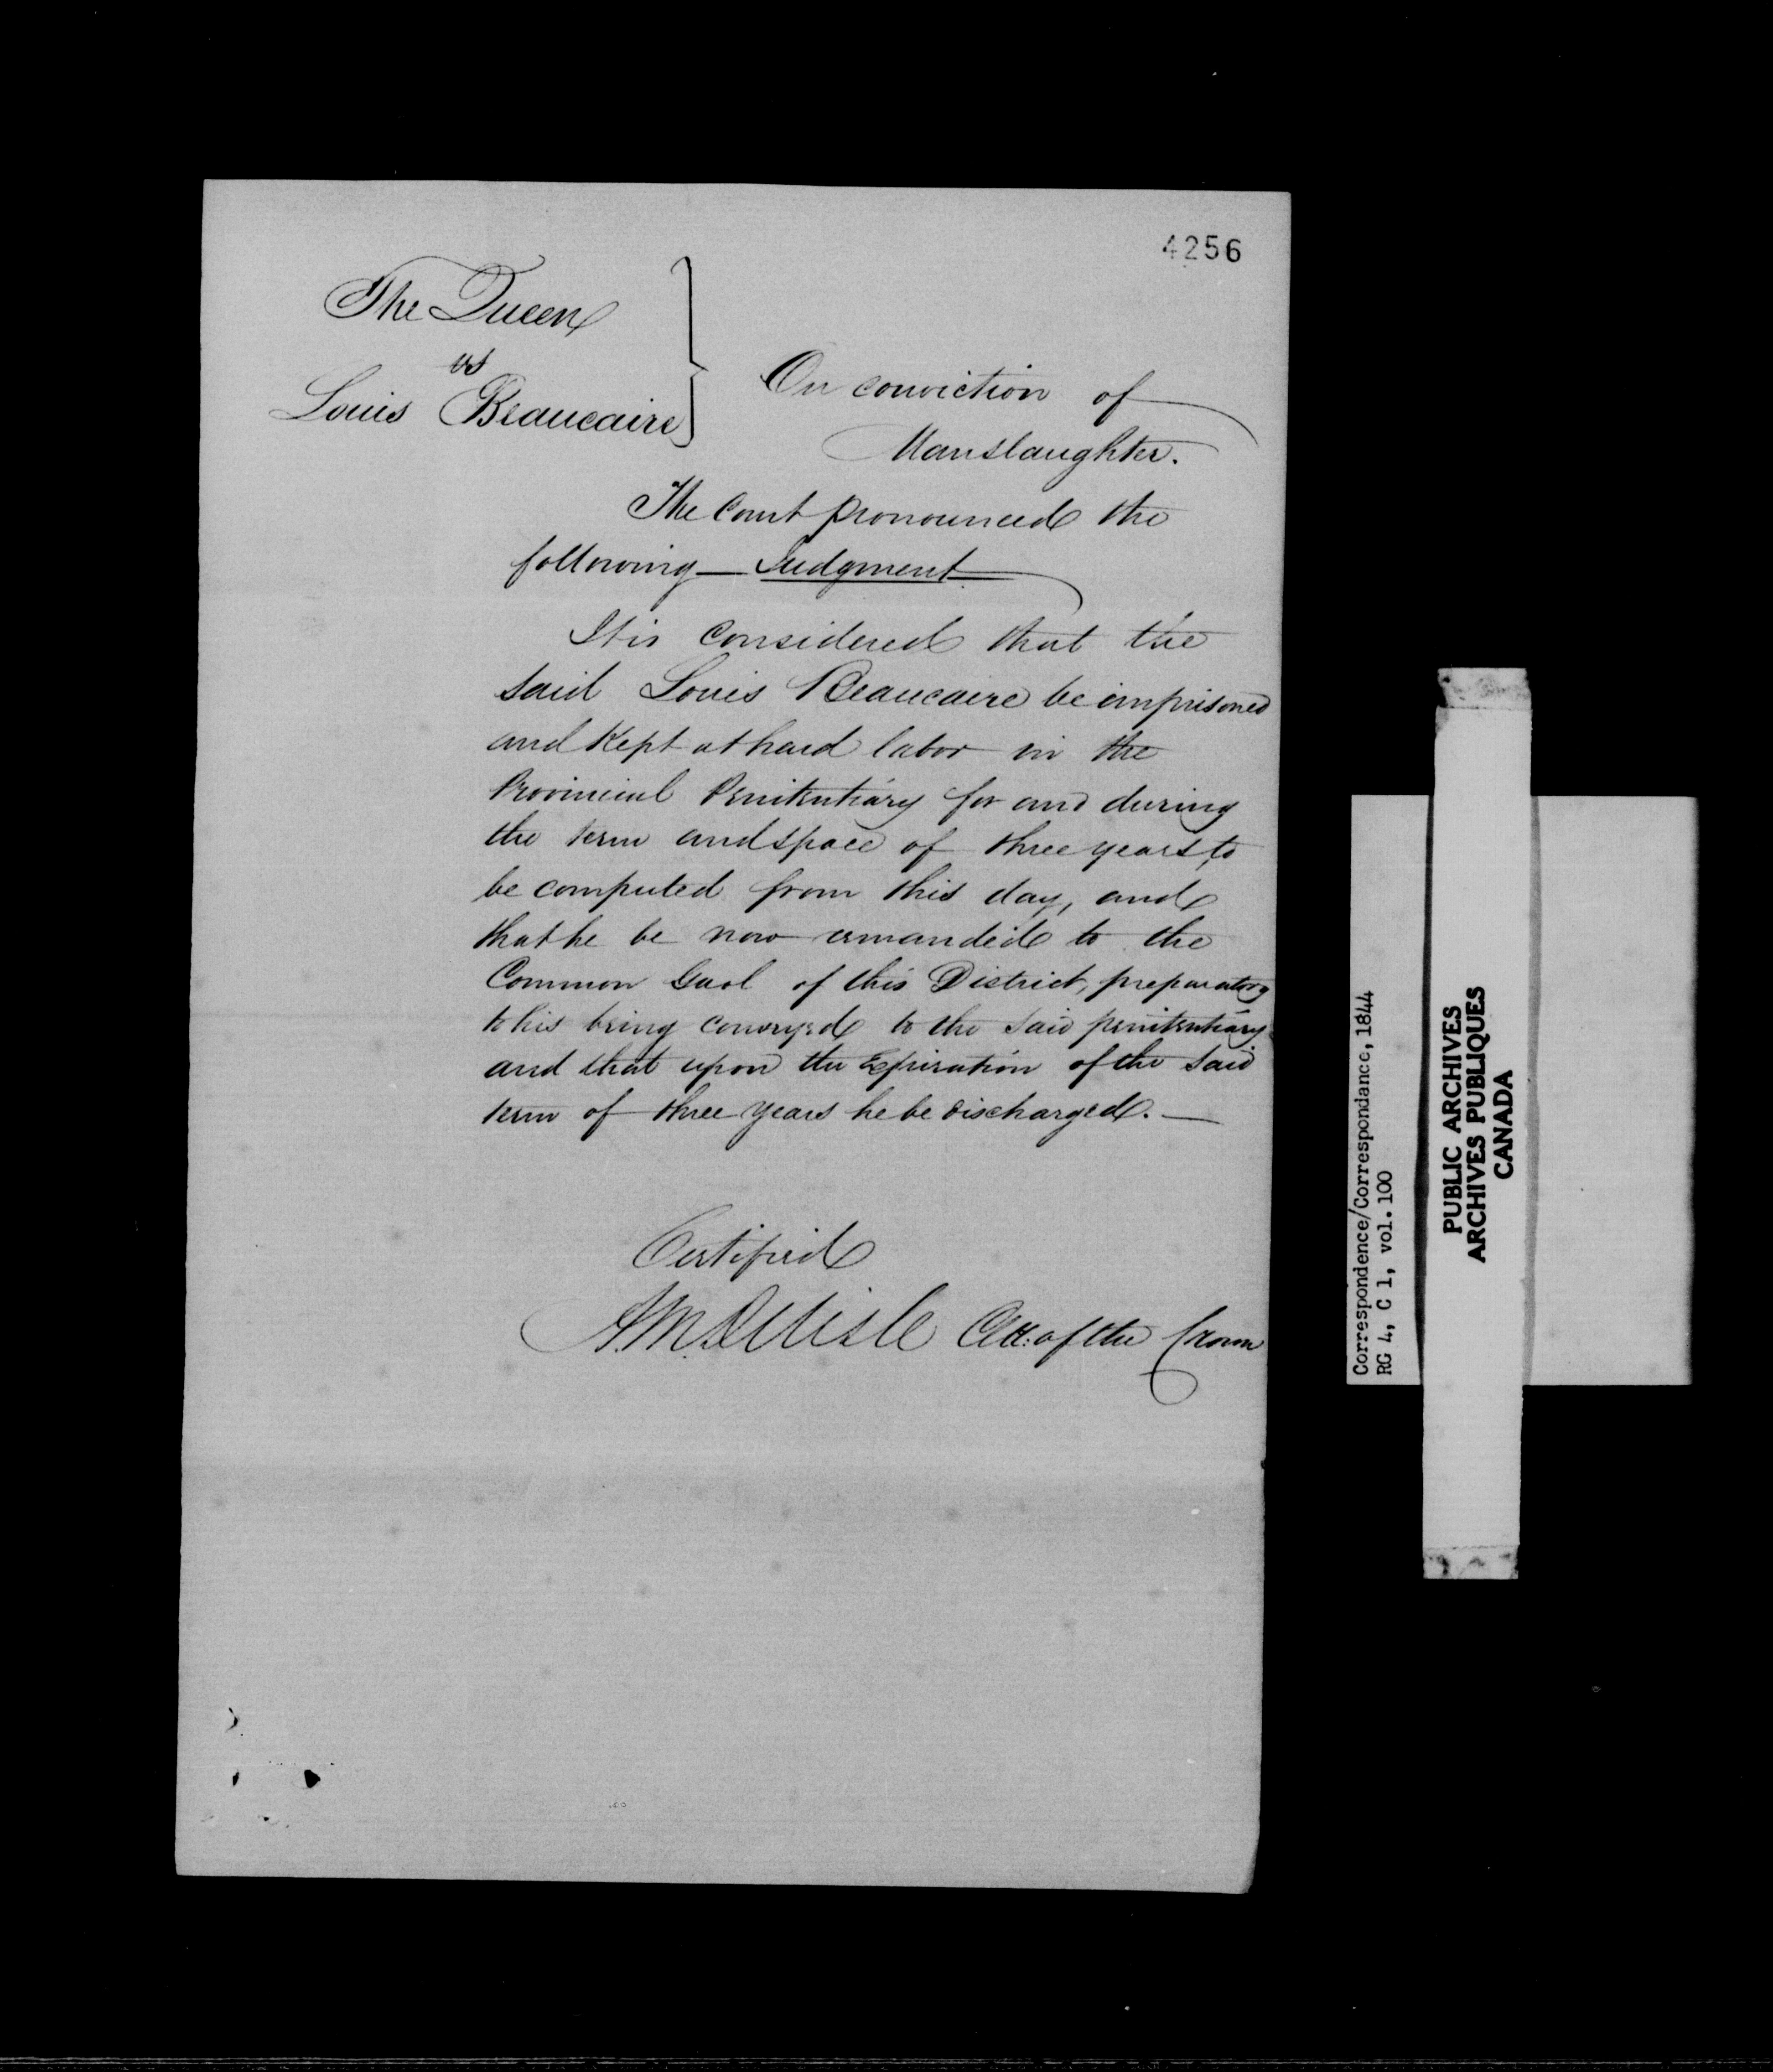 4256
The Queen
vs
Louis Beaucaire
On conviction of
Manslaughter.
The Court pronounced the
following Judgment
It is considered that the
said Louis Beaucaire be imprisoned
and kept at hard labor in the
Provincial Penitentiary for and during
the term and space of three years, to
be computed from this day, and
that he be now remanded to the
Common Gaol of this District, preparatory
to his being conveyed to the said penitentiary
and that upon the Expiration of the said
term of three years he be discharged. —
Certified
A.M. Delisle Clk: of the Crown
Correspondence/Correspondance, 1844
RG 4, C 1, vol. 100
PUBLIC ARCHIVES
ARCHIVES PUBLIQUES
CANADA